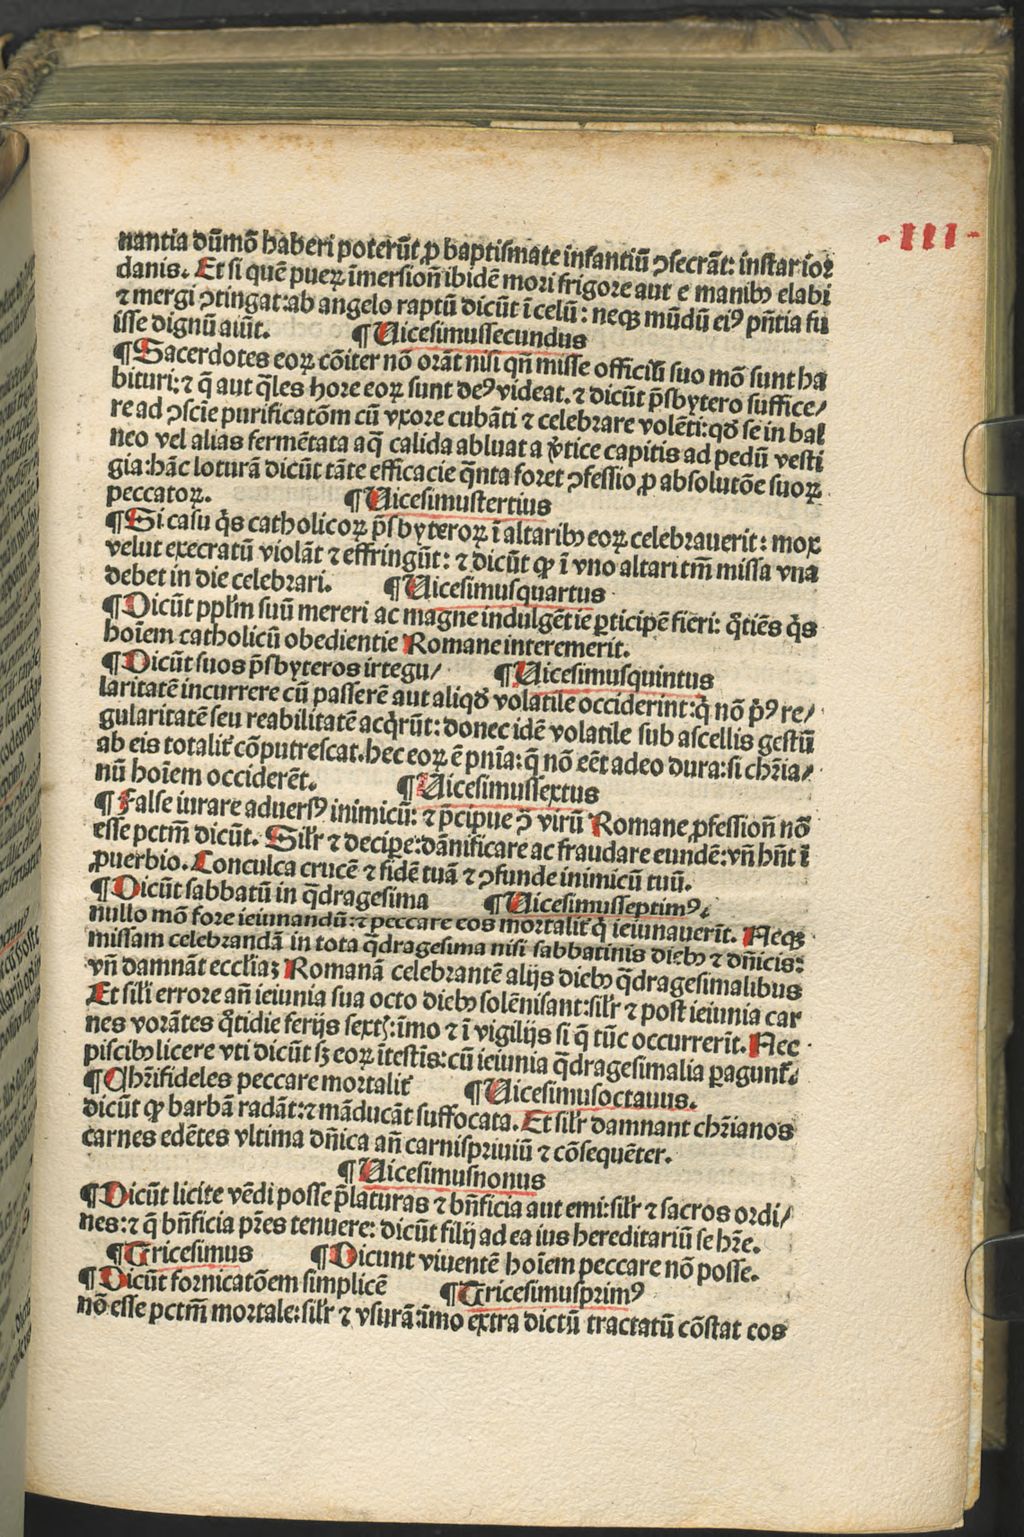 ·III·
nantia dūmō haberi poterūt ꝓ baptismate infantiū ↄsecrāt: instar ioꝛ
danis. Et si quē pueꝝ īmersion̄ ibidē moꝛi frigoꝛe aut e manibꝰ elabi
⁊ mergi ↄtingat: ab angelo raptū dicūt ī celū: neqꝫ mūdū eiꝰ pn̄tia fu
isse dignū aiūt. ¶ Uicesimussecundus
¶ Sacerdotes eoꝝ cōiter nō oꝛāt nisi qn̄ misse officiū suo mō sunt ha
bituri: ⁊ q̄ aut q̄les hoꝛe eoꝝ sunt deꝰ videat. ⁊ dicūt p̄sbytero suffice⸗
re ad ↄscie purificatōm cū vxoꝛe cubāti ⁊ celebꝛare volēti: qđ se in bal
neo vel alias fermētata aq̄ calida abluat a v̓tice capitis ad pedū vesti
gia: hāc loturā dicūt tāte efficacie q̄nta foꝛet ↄfessio ꝓ absolutōe suoꝝ
peccatoꝝ. ¶ Uicesimustertius
¶ Si casu q̄s catholicoꝝ p̄sbyteroꝝ ī altaribꝰ eoꝝ celebꝛauerit: mox
velut execratū violāt ⁊ effringūt: ⁊ dicūt ꝙ ī vno altari tm̄ missa vna
debet in die celebꝛari. ¶ Uicesimusquartus
¶ Dicūt ppl'm suū mereri ac magne indulgētie ꝑticipē fieri: q̄tiēs q̄s
hoīem catholicū obedientie Romane interemerit.
¶ Dicūt suos p̄sbyteros irregu⸗ ¶ Uicesimusquintus
laritatē incurrere cū passerē aut aliqđ volatile occiderint: q̄ nō p̄ꝰ re⸗
gularitatē seu reabilitatē acq̄rūt: donec idē volatile sub ascellis gestū
ab eis totalit̓ cōputrescat. hec eoꝝ ē pn̄ia: q̄ nō eēt adeo dura: si chꝛ̄ia⸗
nū hoīem occiderēt. ¶ Uicesimussextus
¶ False iurare aduersꝰ inimicū: ⁊ p̄cipue ↄ̄ virū Romane ꝓfession̄ nō
esse pctm̄ dicūt. Sil'r ⁊ decipe: dānificare ac fraudare eundē: vn̄ hn̄t ī
ꝓuerbio. Conculca crucē ⁊ fidē tuā ⁊ ↄfunde inimicū tuū.
¶ Dicūt sabbatū in q̄dragesima ¶ Uicesimusseptimꝰ.
nullo mō foꝛe ieiunandū: ⁊ peccare eos moꝛtalit̓ q̇ ieiunauerīt. Neqꝫ
missam celebꝛandā in tota q̄dragesima nisi sabbatinis diebꝰ ⁊ dn̄icis:
vn̄ damnāt eccl'iaꝫ Romanā celebꝛantē alijs diebꝰ q̄dragesimalibus
Et sil'i erroꝛe an̄ ieiunia sua octo diebꝰ solēnisant: sil'r ⁊ post ieiunia car
nes voꝛātes q̄tidie ferijs sext̓: īmo ⁊ ī vigilijs si q̄ tūc occurrerīt. Nec
piscibꝰ licere vti dicūt sꝫ eoꝝ ītestīs: cū ieiunia q̄dragesimalia ꝑagunt̓.
¶ Chꝛ̄ifideles peccare moꝛtalit̓ ¶ Uicesimusoctauus.
dicūt ꝙ barbā radāt: ⁊ māducāt suffocata. Et sil'r damnant chꝛ̄ianos
carnes edētes vltima dn̄ica an̄ carnispꝛiuiū ⁊ cōsequēter.
¶ Uicesimusnonus
¶ Dicūt licite vēdi posse p̄laturas ⁊ bn̄ficia aut emi: sil'r ⁊ sacros oꝛdi⸗
nes: ⁊ q̄ bn̄ficia pr̄es tenuere: dicūt filij ad ea ius hereditariū se hr̄e.
¶ Tricesimus ¶ Dicunt viuentē hoīem peccare nō posse.
¶ Dicūt foꝛnicatōem simplicē ¶ Tricesimuspꝛimꝰ
nō esse pctm̄ moꝛtale: sil'r ⁊ vsurā: īmo extra dictū tractatū cōstat eos